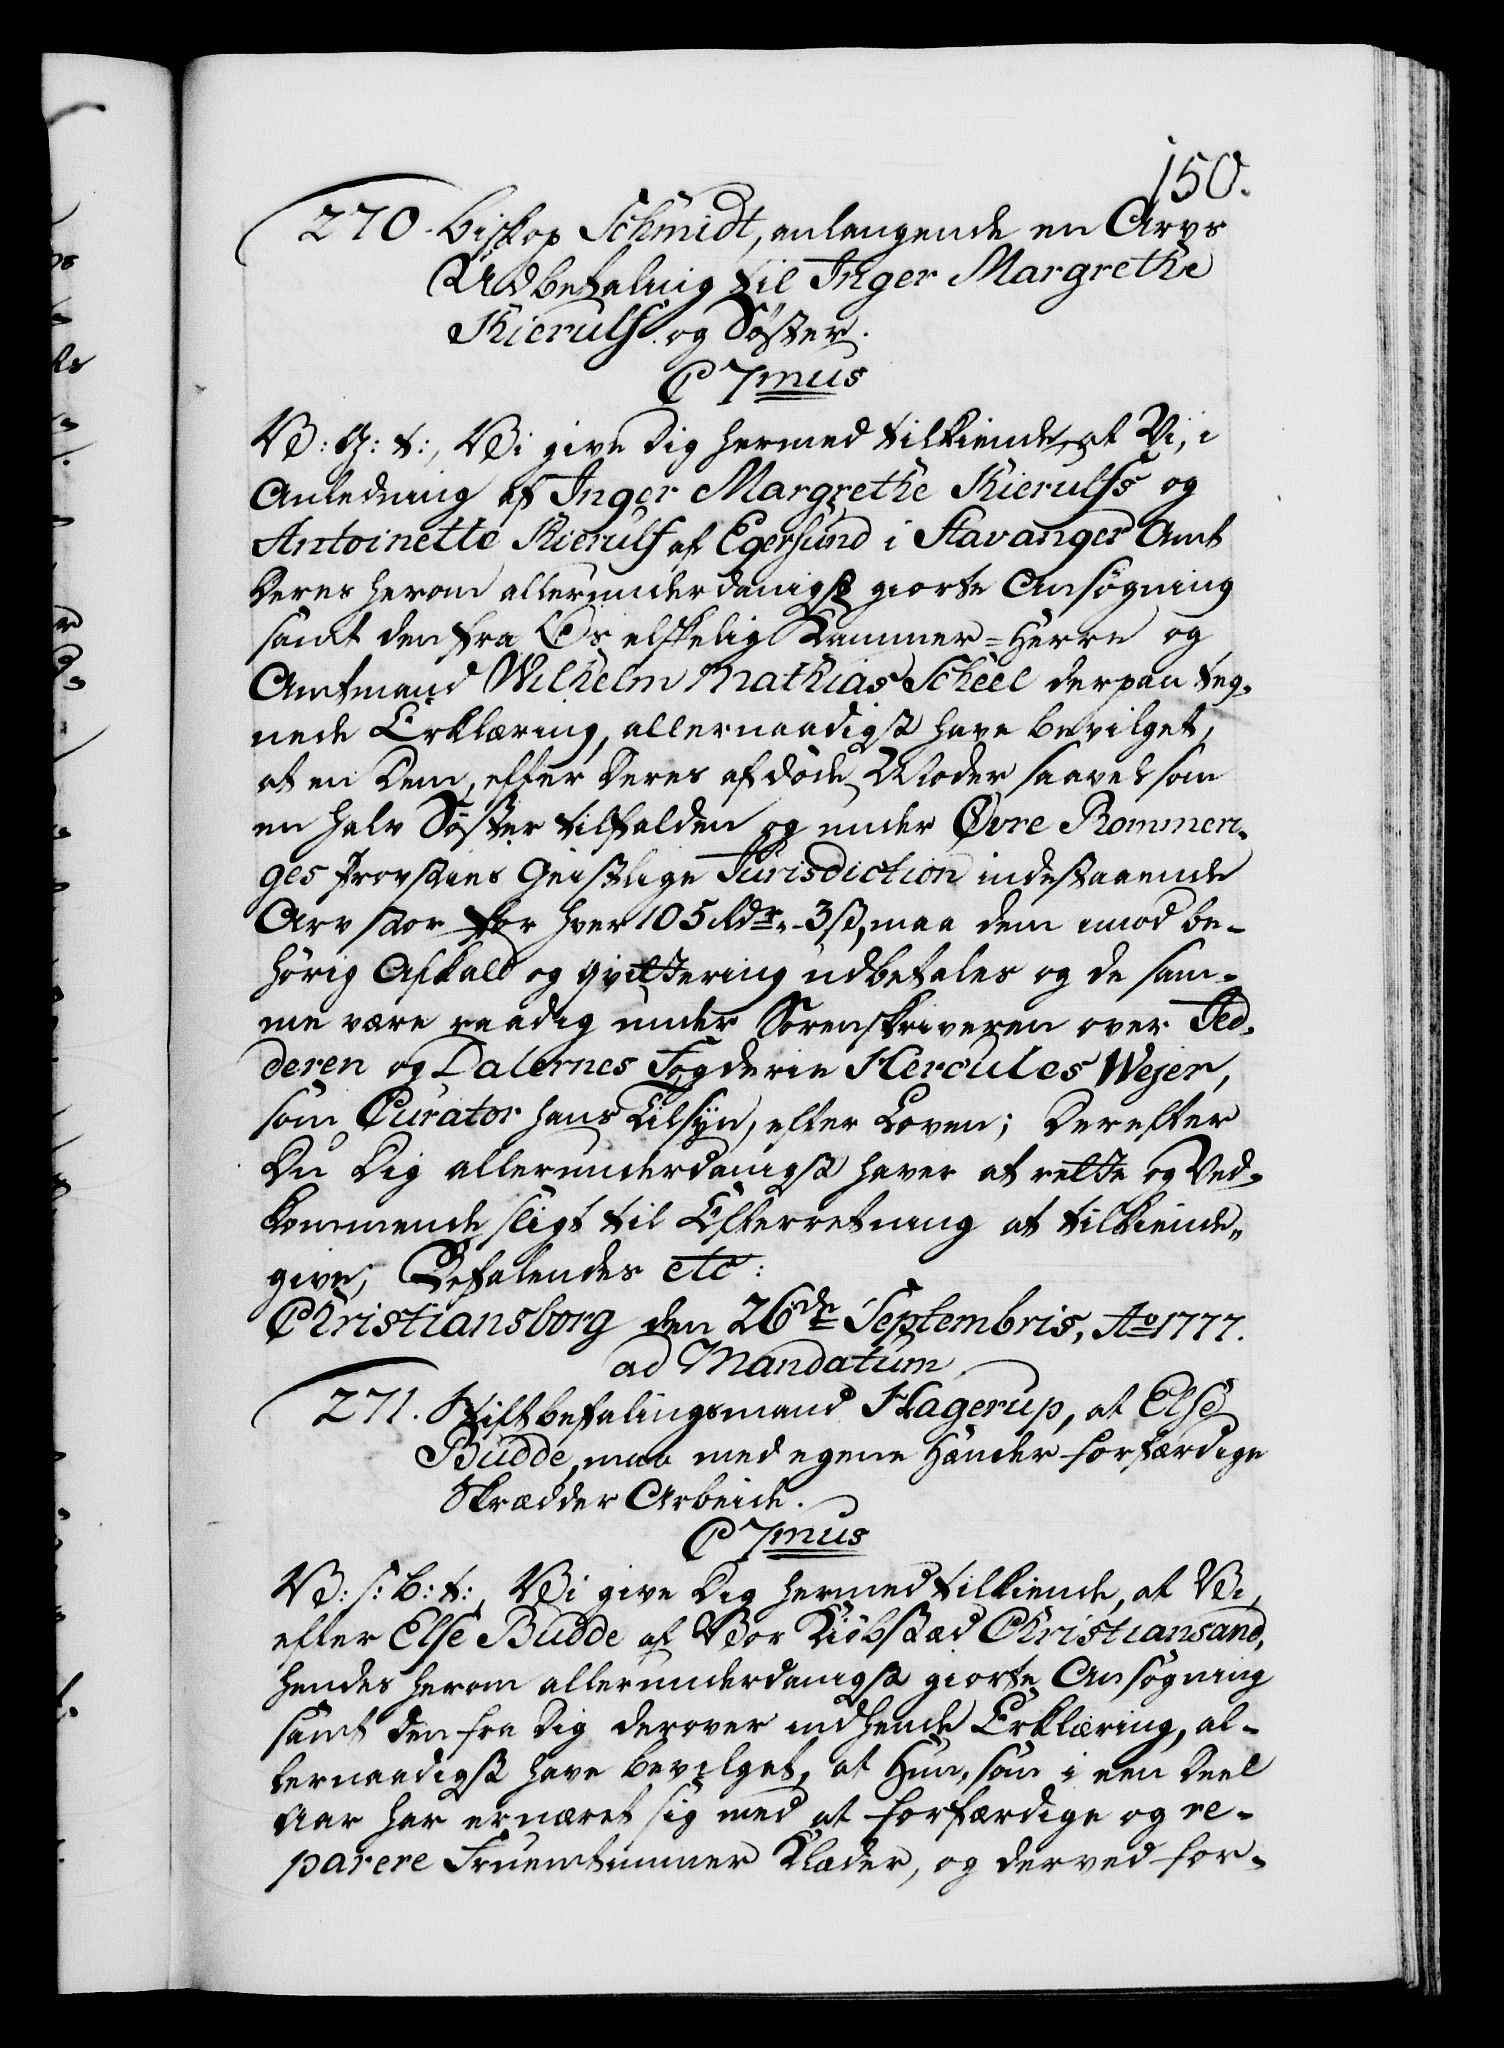 150.
270. Biskop Schmidt, anlangende en Arvs
Udbetaling til Inger Margrethe
Kierulf og Söster.
C 7mus
V: G: t:, Vi give Dig hermed tilkiende, at Vi, i
Anledning af Inger Margrethe Kierulfs og
Antoinette Kierulf af Egersund i Stavanger Amt
Deres herom allerunderdanigst giorte Ansögning
samt den fra Os elskelig Kammer-Herre og
Amtmand Wilhelm Mathias Scheel derpaa teg-
nede Erklæring, allernaadigst have bevilget,
at en Dem, efter Deres afdöde Moder saavelsom
en halv Söster tilfalden og under Övre Rommeri-
ges Provsties Geistlige Jurisdiction indestaaende
Arv stor for hver 105 Rdr. 3 ß, maa dem imod be-
hörig Afkald og qvittering udbetales og de sam-
me være raadig under Sorenskriveren over Jed-
deren og Dalernes Fogderie Hercules Wejer,
som Curator hans Tilsyn, efter Loven; Derefter
Du Dig allerunderdanigst haver at rette og Ved-
kommende sligt til Efterretning at tilkiende-
give; Befalendes etc:
Christiansborg den 26de Septembris, Ao 1777.
ad Mandatum
271. Stiftbefalingsmand Hagerup, at Else
Budde, maa med egene Hænder forfærdige
Skrædder Arbeide.
C 7mus
V: s: b: t:, Vi give Dig hermed tilkiende, at Vi,
efter Else Budde af Vor Kiöbstæd Christiansand,
hendes herom allerunderdanigst giorte Ansögning
samt den fra Dig derover indhende Erklæring, al-
lernaadigst have bevilget, at Hun, som i een Deel
Aar har ernæret sig med at forfærdige og re-
parere Fruentimmer Klæder, og derved for-